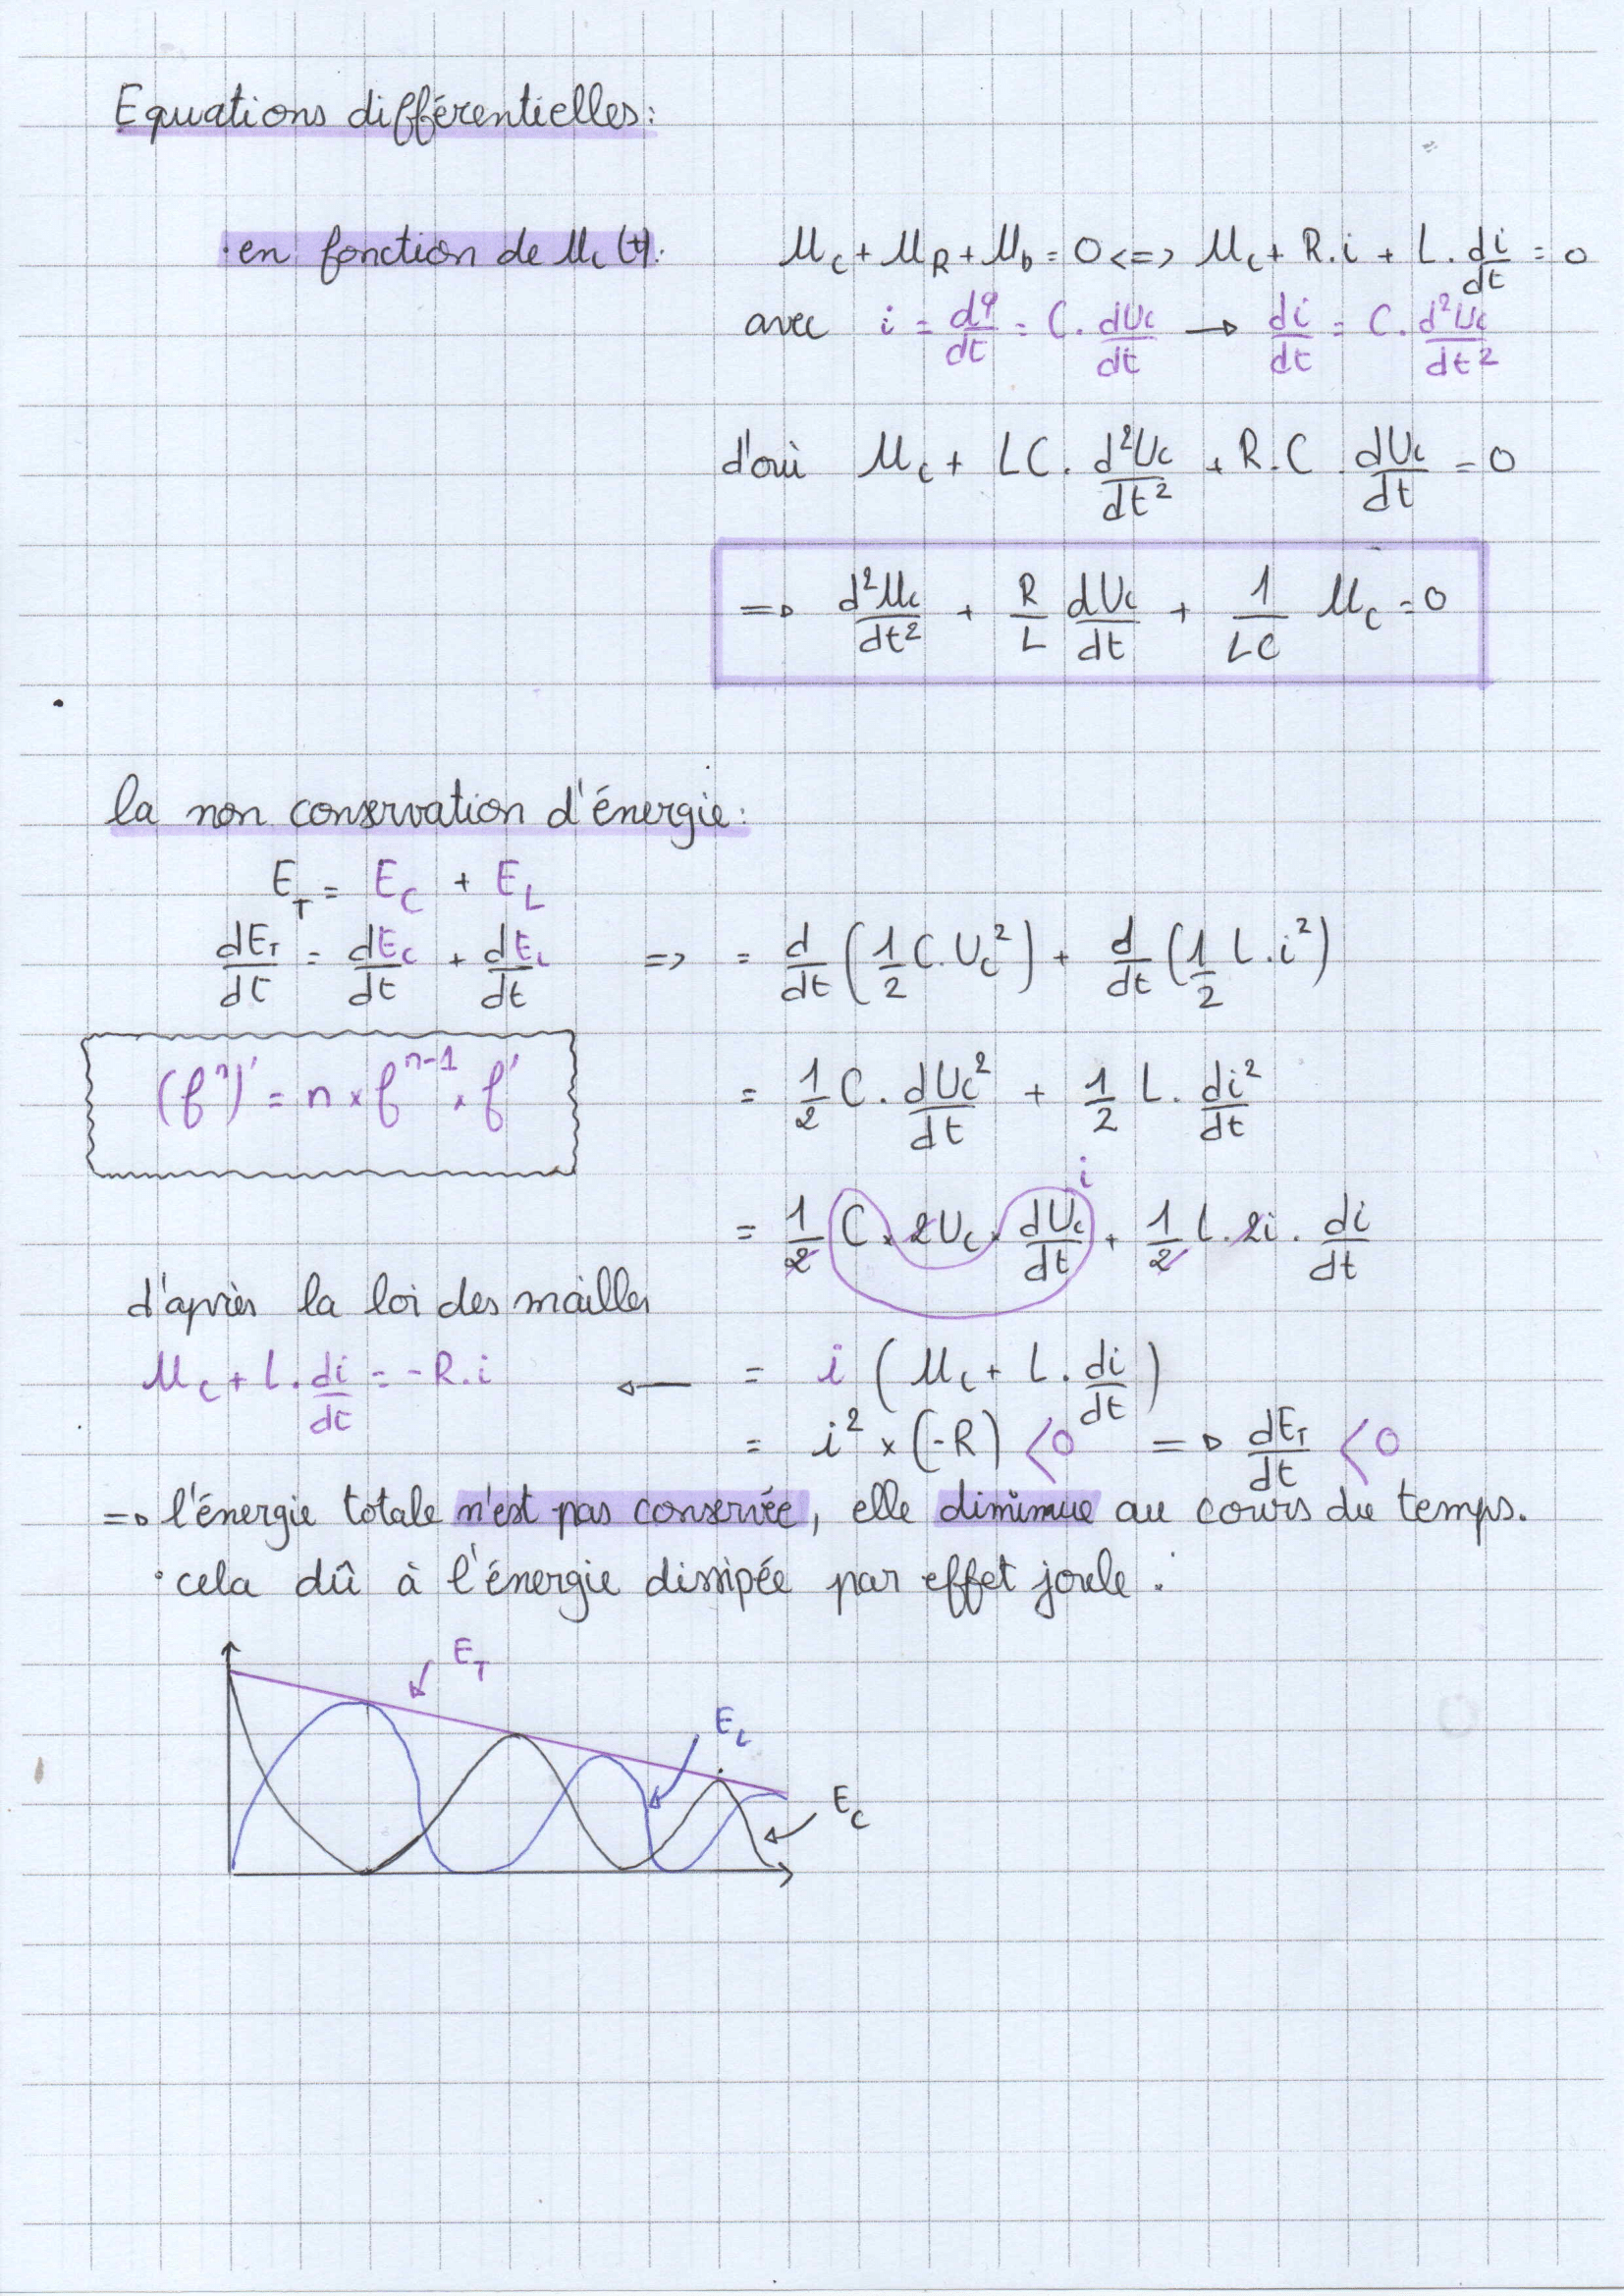 Equations différentielles:
· en fonction de Uc(t): Uc + UR + Ub = 0 <=> Uc + R.i + L.di/dt = 0
avec i = dq/dt = C.dUc/dt → di/dt = C.d²Uc/dt²
d'où Uc + LC.d²Uc/dt² + R.C.dUc/dt = 0
=> d²Uc/dt² + R/L dUc/dt + 1/LC Uc = 0
la non conservation d'énergie:
ET = EC + EL
dET/dt = dEC/dt + dEL/dt => = d/dt (1/2 C.Uc²) + d/dt (1/2 L.i²)
(fⁿ)' = n × fⁿ⁻¹ × f' = 1/2 C.dUc²/dt + 1/2 L.di²/dt
i
= 1/2 C × 2Uc × dUc/dt + 1/2 L.2i.di/dt
d'après la loi des mailles
Uc + L.di/dt = -R.i ← = i (Uc + L.di/dt)
= i² × (-R) <0 => dET/dt <0
=> l'énergie totale n'est pas conservée, elle diminue au cours du temps.
· cela dû à l'énergie dissipée par effet joule.
ET
EL
EC